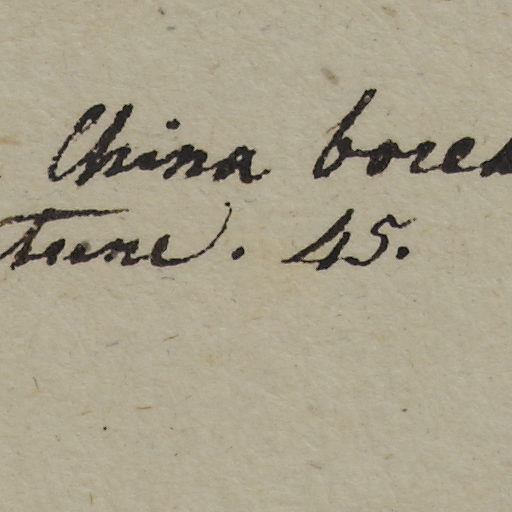 China borea
tune. 45.